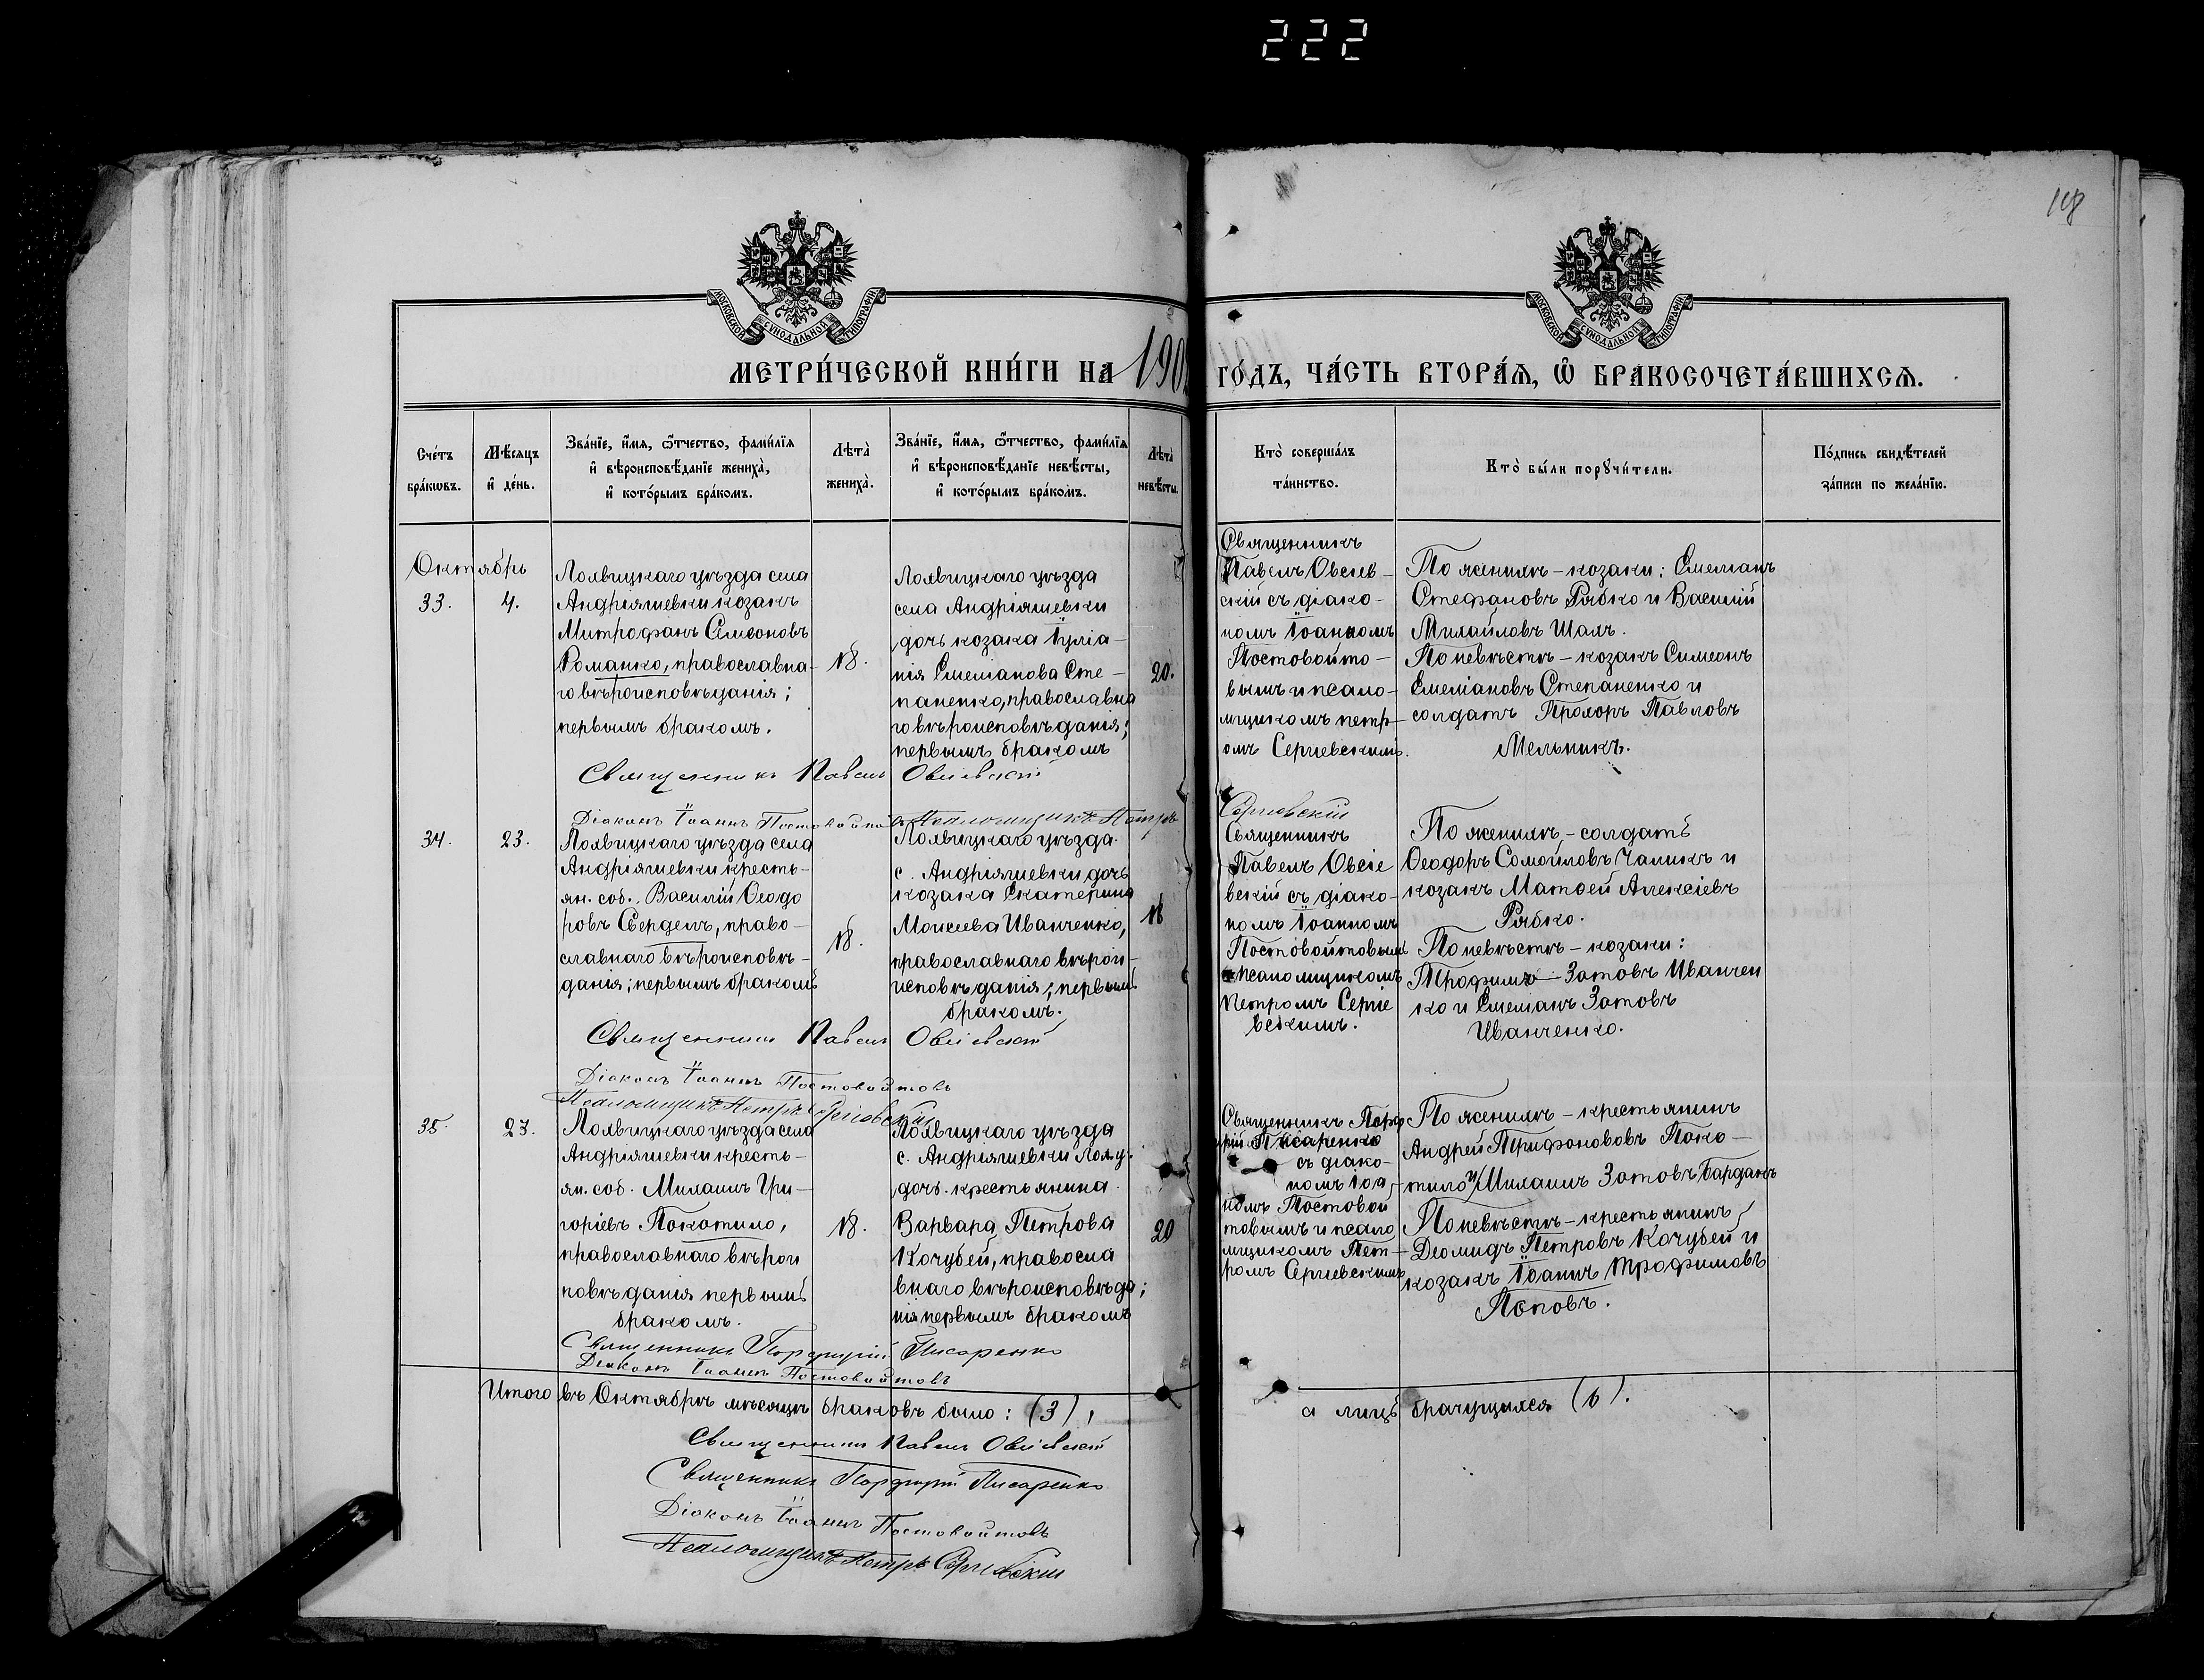 222
118
МОСКОВСКОЙ СУНОДАЛЬНОЙ ТИПОГРАФІИ
МОСКОВСКОЙ СУНОДАЛЬНОЙ ТИПОГРАФІИ
МЕТРИ́ЧЕСКОЙ КНИ́ГИ НА 190
ГО́ДЪ, ЧА́СТЬ ВТОРА́Ѧ, Ѡ҆ БРАКОСОЧЕТА́ВШИХСѦ.
Сче́тъ бра́кѡвъ.
Мѣ́сяцъ и҆ де́нь.
Зва́нїе, и҆́мя, ѻ҆́тчество, фами́лїя и҆ вѣроисповѣ́данїе жениха̀, и҆ кото́рымъ бра́комъ.
Лѣта̀ жениха̀.
Зва́нїе, и҆́мя, ѻ҆́тчество, фами́лїя и҆ вѣроисповѣ́данїе невѣ́сты, и҆ кото́рымъ бра́комъ.
Лѣта̀ невѣ́сты.
Кто̀ соверша́лъ та́инство.
Кто̀ бы́ли порꙋчи́тели.
По́дпись свидѣ́телей за́писи по жела́нїю.
Октябрь
33.
4.
Лохвицкаго уѣзда села
Андріяшевки козакъ
Митрофанъ Симеоновъ
Романко, православна-
го вѣроисповѣданія;
первымъ бракомъ.
18.
Лохвицкаго уѣзда
села Андріяшевки
дочь козака Іуліа-
нія Емеліанова Сте-
паненко, православна
го вѣроисповѣданія;
первымъ бракомъ
20.
Священникъ
Павелъ Овсіев-
скій съ діако-
номъ Іоанномъ
Постовойто-
вымъ и псало-
мщикомъ Петр-
омъ Сергіевскимъ.
По женихѣ - козаки: Емеліанъ
Стефановъ Рябко и Василій
Михайловъ Шахъ.
По невѣстѣ - козакъ Симеонъ
Емеліановъ Степаненко и
солдатъ Прохоръ Павловъ
Мельникъ.
Священникъ Павелъ Овсіевскій
Діаконъ Іоаннъ Постовойтовъ Псаломщикъ Петръ
Сергіевскій
34.
23.
Лохвицкаго уѣзда села
Андріяшевки кресть-
ян. соб. Василій Ѳеодо
ровъ Сердекъ, право-
славнаго вѣроисповѣ-
данія; первымъ бракомъ
18.
Лохвицкаго уѣзда
с. Андріяшевки дочь
козака Екатерина
Моисеева Иванченко,
православнаго вѣрои-
исповѣданія; первымъ
бракомъ.
16
Священникъ
Павелъ Овсіе
вскій съ діако-
номъ Іоанномъ
Постовойтовымъ
и псаломщикомъ
Петромъ Сергіе
вскимъ.
По женихѣ - солдатъ
Ѳеодоръ Сомойловъ Чаликъ и
козакъ Матѳей Алексіевъ
Рябко.
По невѣстѣ - козаки:
Трофимъ Зотовъ Иванчен
ко и Емеліанъ Зотовъ
Иванченко.
Священникъ Павелъ Овсіевскій
Діаконъ Іоаннъ Постовойтовъ
Псаломщикъ Петръ Сергіевскій
35.
27.
Лохвицкаго уѣзда села
Андріяшевки кресть-
ян. соб. Михаилъ Гри-
горіевъ Покотило,
православнаго вѣрои
повѣданія первымъ
бракомъ.
18.
Лохвицкаго уѣзда
с. Андріяшевки Лох. у.
дочь крестьянина
Варвара Петрова
Кочубей, правосла
внаго вѣроисповѣда;
нія первымъ бракомъ
20
Священникъ Порф
ирій Писаренко
съ діако-
номъ Іоа-
нномъ Постовой
товымъ и псало
мщикомъ Пет-
ромъ Сергіевскимъ
По женихѣ - крестьянинъ
Андрей Трифоновъ Поко-
тило, Михаилъ Зотовъ Барданъ
По невѣстѣ - крестьянинъ
Діомидъ Петровъ Кочубей и
козакъ Іоаннъ Трофимовъ
Поповъ.
Священникъ Порфирій Писаренко
Діаконъ Іоаннъ Постовойтовъ
Итого въ Октябрѣ мѣсяцѣ браковъ было: (3),
а лицъ брачущихся (6).
Священникъ Павелъ Овсіевскій
Священникъ Порфирій Писаренко
Діаконъ Іоаннъ Постовойтовъ
Псаломщикъ Петръ Сергіевскій